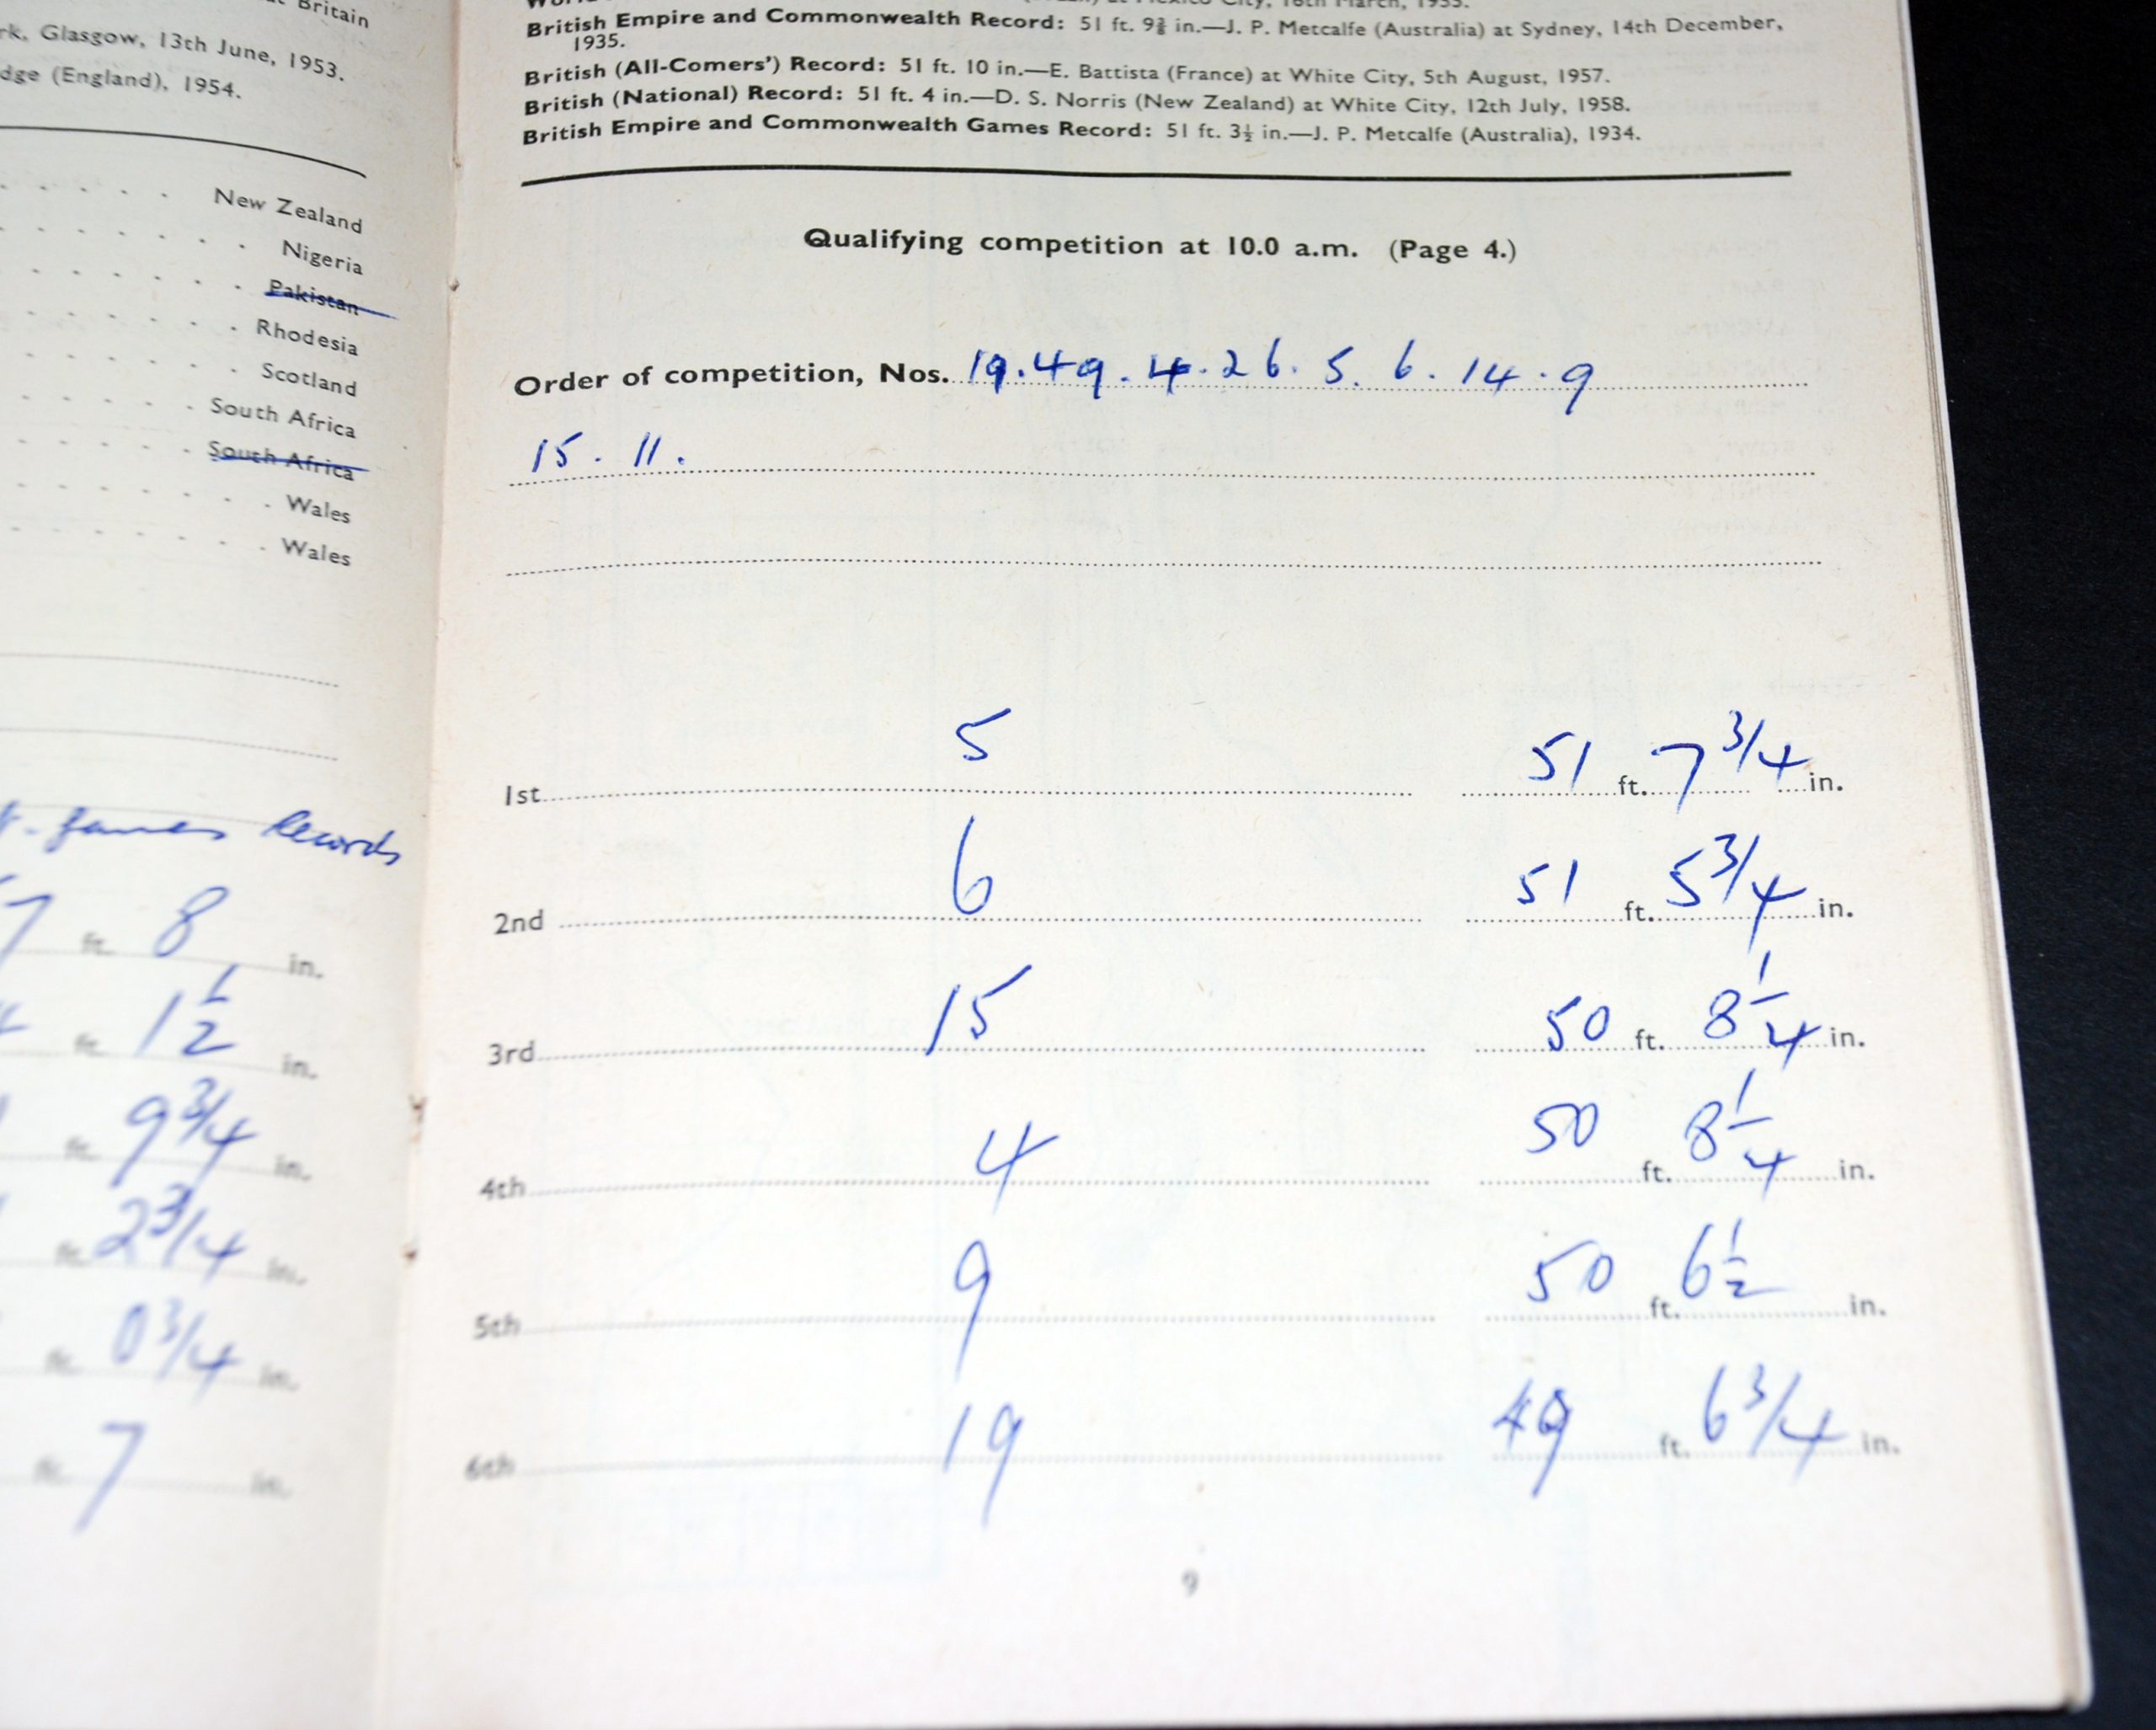 Britain
rk, Glasgow, 13th June, 1953.
dge (England), 1954.
New Zealand
Nigeria
Pakistan
Rhodesia
Scotland
South Africa
South Africa
Wales
Wales
Games Records
7 ft. 8 in.
ft. 1 1/2 in.
ft. 9 3/4 in.
ft. 2 3/4 in.
ft. 0 3/4 in.
ft. 7 in.
City, 16th March, 1955.
British Empire and Commonwealth Record: 51 ft. 9⅜ in.—J. P. Metcalfe (Australia) at Sydney, 14th December,
1935.
British (All-Comers') Record: 51 ft. 10 in.—E. Battista (France) at White City, 5th August, 1957.
British (National) Record: 51 ft. 4 in.—D. S. Norris (New Zealand) at White City, 12th July, 1958.
British Empire and Commonwealth Games Record: 51 ft. 3½ in.—J. P. Metcalfe (Australia), 1934.
Qualifying competition at 10.0 a.m. (Page 4.)
Order of competition, Nos. 19. 49. 4. 26. 5. 6. 14. 9
15. 11.
1st 5 51 ft. 7 3/4 in.
2nd 6 51 ft. 5 3/4 in.
3rd 15 50 ft. 8 1/4 in.
4th 4 50 ft. 8 1/4 in.
5th 9 50 ft. 6 1/2 in.
6th 19 49 ft. 6 3/4 in.
9